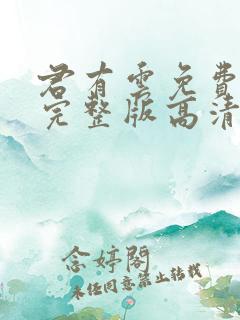 君有雲免費
完整版高清
念婷閣
未经同意禁止转载